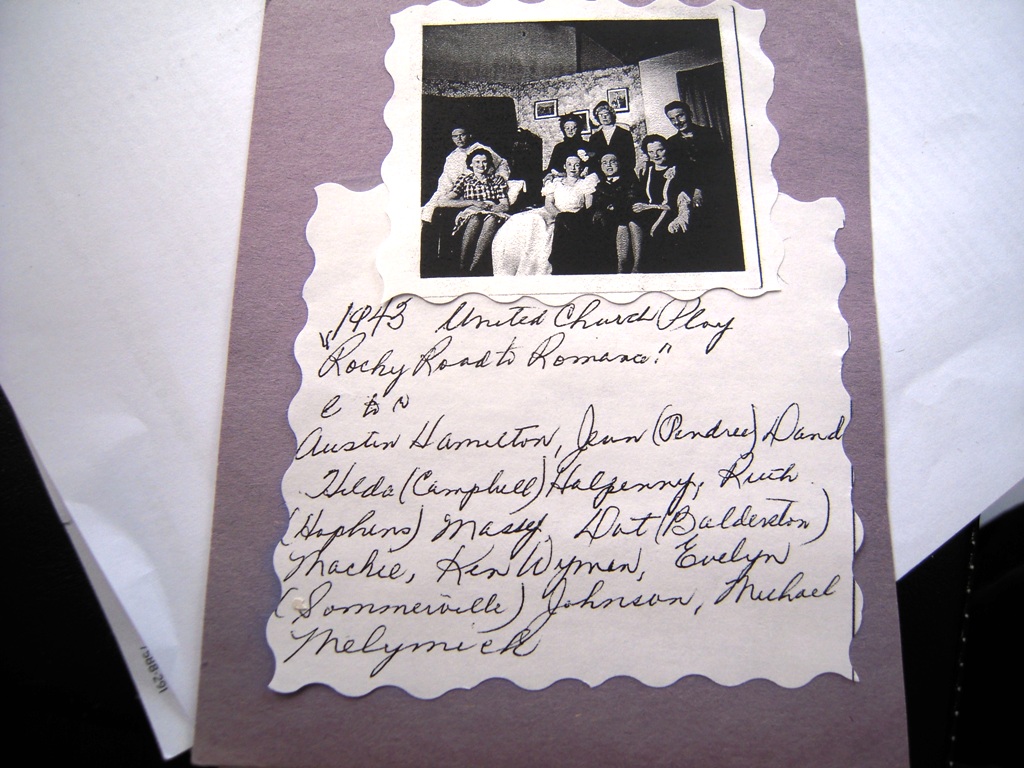 1943 United Church Play
"Rocky Road to Romance."
Austin Hamilton, Jean (Pendree) Dand
Hilda (Campbell) Halpenny, Ruth
(Hopkins) Massey, Dot (Balderston)
Mackie, Ken Wyman, Evelyn
(Sommerville) Johnson, Michael
Melymick
162-8857